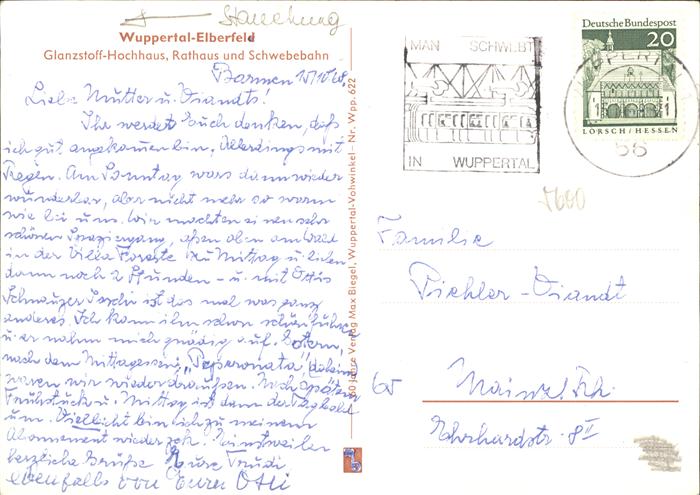 Stauchung
Wuppertal-Elberfeld
Glanzstoff-Hochhaus, Rathaus und Schwebebahn
Barmen 15/10 68.
Liebe Mutter u. Viandts!
Ihr werdet Euch denken, daß
ich gut angekommen bin, Allerdings mit
Regen. Am Sonntag wars dann wieder
wunderbar, aber nicht mehr so warm
wie bei uns. Wir machten einen sehr
schönen Spaziergang, aßen oben am Wald
in der Villa Foreste zu Mittag u. liefen
dann noch 2 Stunden – u. mit Ottis
Schnauzer Pascha ist das mal was ganz
anderes. Ich kann ihn schon schön führen
u. er nahm mich gnädig auf. Gestern,
nach dem Mittagessen: „Peperonata“ (daheim)
waren wir wieder draußen. Noch spätem
Frühstück u. Mittag ist dann der Tag bald
um. Vielleicht bin ich zu meinem
Abonnement wieder zurück. Einstweilen
herzliche Grüße Eure Trudi
ebenfalls von Eurer Otti
50 Jahre Verlag Max Biegel, Wuppertal-Vohwinkel – Nr. Wpp. 622
MAN SCHWEBT
IN WUPPERTAL
Deutsche Bundespost
20
LORSCH/HESSEN
WUPPERTAL
56
Familie
Pichler-Viandt
65 Mainz/Rh.
Ehrhardstr. 8 II